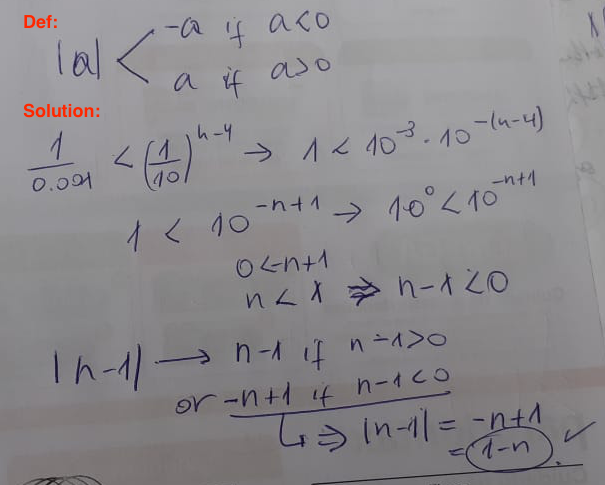 Def:
|a| < -a if a<0
a if a>0
Solution:
1/0.001 < (1/10)^(n-4) → 1 < 10^(-3) · 10^(-(n-4))
1 < 10^(-n+1) → 10^0 < 10^(-n+1)
0 < -n+1
n < 1 ⇒ n-1 < 0
|n-1| → n-1 if n-1>0
or -n+1 if n-1<0
↳ ⇒ |n-1| = -n+1
= 1-n ✓